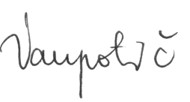 Vaupotič